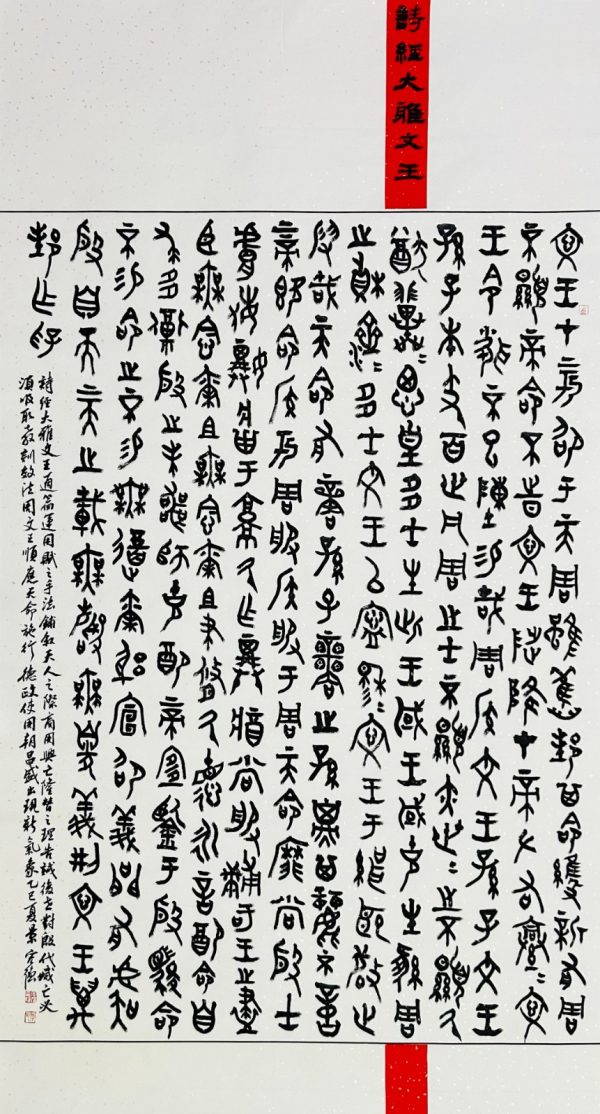 詩經大雅文王
文王在上於昭于天周雖舊邦其命維新有周
不顯帝命不時文王陟降在帝左右亹=文
王令聞不已陳錫哉周侯文王孫子文王
孫子本支百世凡周之士不顯亦世=之不顯厥
猶翼=思皇多士生此王國王國克生維周
之楨濟=多士文王以寧穆=文王于緝熙敬止
假哉天命有商孫子商之孫子其麗不億上
帝既命侯于周服侯服于周天命靡常殷士
膚敏祼將于京厥作祼將常服黼冔王之藎
臣無念爾祖無念爾祖聿修厥德永言配命自
求多福殷之未喪師克配上帝宜鑒于殷駿命
不易命之不易無遏爾躬宣昭義問有虞
殷自天上天之載無聲無臭儀刑文王萬
邦作孚
詩經大雅文王通篇運用賦之手法鋪叙天人之際商周興亡隆替之理告誡後世對殷代滅亡必
須吸取教訓效法周文王順應天命施行德政使周朝昌盛出現新氣象乙巳夏景